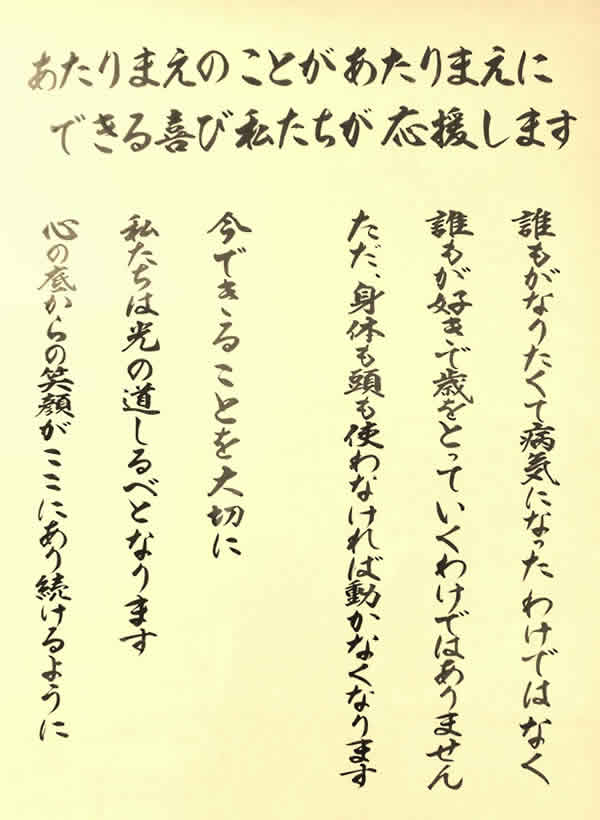 あたりまえのことがあたりまえに
できる喜び私たちが応援します
誰もがなりたくて病気になったわけではなく
誰もが好きで歳をとっていくわけではありません
ただ、身体も頭も使わなければ動かなくなります
今できることを大切に
私たちは光の道しるべとなります
心の底からの笑顔がここにあり続けるように